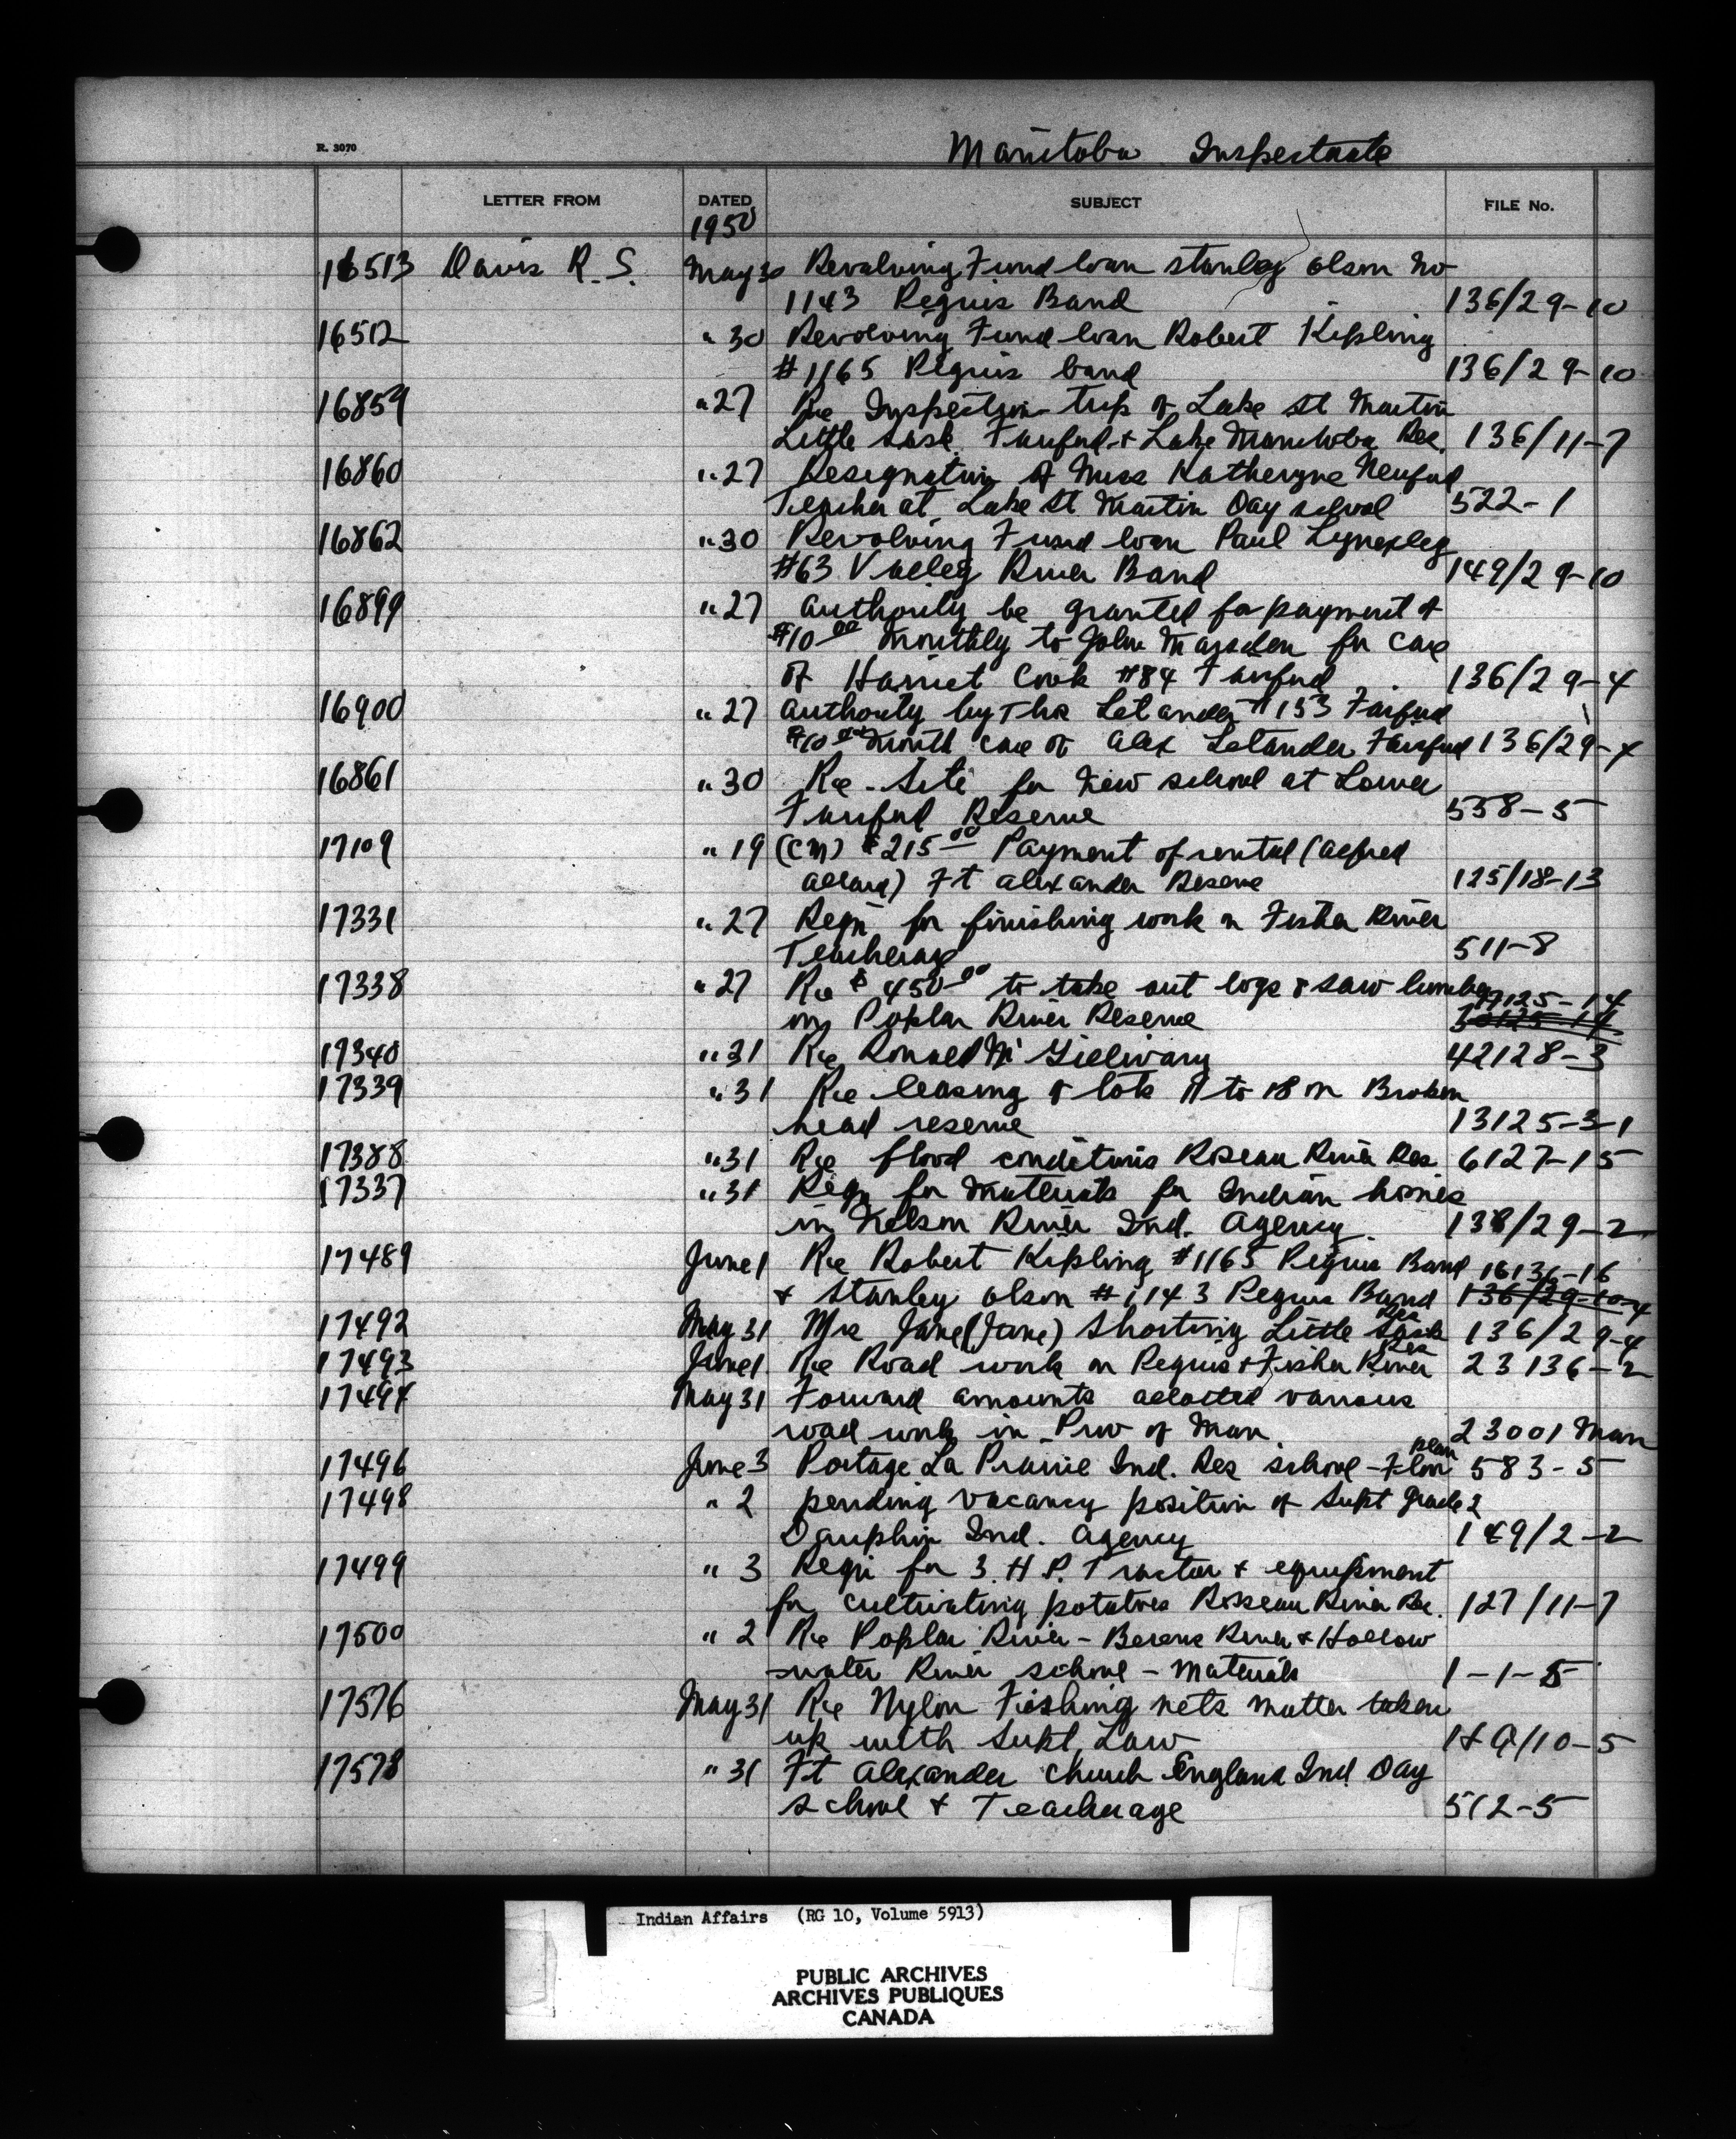 Manitoba Inspectorate
R. 3070
LETTER FROM DATED SUBJECT FILE No.
1950
16513 Davis R. S. May 30 Revolving Fund loan Stanley Olson No
1143 Peguis Band 136/29-10
16512 " 30 Revolving Fund loan Robert Kipling
#1165 Peguis band 136/29-10
16859 " 27 Re Inspection trip of Lake St Martin
Little Sask. Fairford & Lake Manitoba Res. 136/11-7
16860 " 27 Resignation of Miss Katheryne Neufeld
Teacher at Lake St Martin Day school 522-1
16862 " 30 Revolving Fund loan Paul
#63 Valley River Band 149/29-10
16899 " 27 authority be granted for payment of
$10.00 monthly to John Marsden for care
of Harriet Cook #84 Fairford 136/29-4
16900 " 27 authority by Thos Letander #153 Fairford
$10.00 month care of Alex Letander Fairford 136/29-4
16861 " 30 Re - Site for new school at Lower
Fairford Reserve 558-5
17109 " 19 (CM) $215.00 Payment of rental (Alfred
Allard) Ft Alexander Reserve 125/18-13
17331 " 27 Reqn for finishing work on Fisher River
Teacherage 511-8
17338 " 27 Re $450.00 to take out logs & saw lumber
on Poplar River Reserve 30125-14
17340 " 31 Re Ronald McGillivary 42128-3
17339 " 31 Re leasing of lots 11 to 18 in Broken
head reserve 13125-3-1
17388 " 31 Re flood conditions Roseau River Res. 6127-15
17337 " 31 Reqn for materials for Indian homes
in Nelson River Ind. Agency. 138/29-2
17489 June 1 Re Robert Kipling #1165 Peguis Band 16136-16
& Stanley Olson #1143 Peguis Band 136/29-10-4
17492 May 31 Mrs Jane (Jane) Shorting Little Sask Res 136/29-4
17493 June 1 Re Road work on Peguis & Fisher River Res 23136-2
17494 May 31 Forward amounts allotted various
road work in Prov of Man. 23001 Man
17496 June 3 Portage La Prairie Ind. Res school - Floor plan 583-5
17498 " 2 pending vacancy position of Supt Grade 2
Dauphin Ind. Agency 149/2-2
17499 " 3 Reqn for 3. H.P. Tractor & equipment
for cultivating potatoes Roseau River Res. 127/11-7
17500 " 2 Re Poplar River - Berens River & Hollow
water River school - materials 1-1-5
17576 May 31 Re Nylon Fishing nets matter taken
up with Supt. Law H Q/10-5
17578 " 31 Ft Alexander Church England Ind Day
School & Teacherage 512-5
Indian Affairs (RG 10, Volume 5913)
PUBLIC ARCHIVES
ARCHIVES PUBLIQUES
CANADA